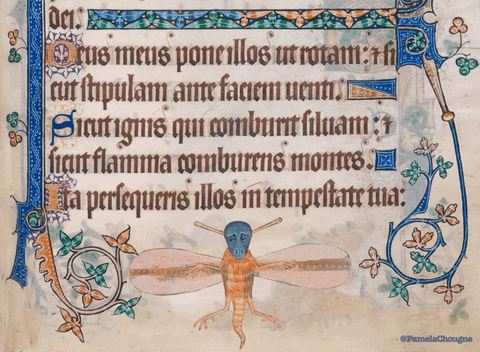 dei.
Deus meus pone illos ut rotam: ⁊ si
cut stipulam ante faciem uenti.
Sicut ignis qui comburit siluam: ⁊
sicut flamma comburens montes.
Ita persequeris illos in tempestate tua:
@PamelaChougne